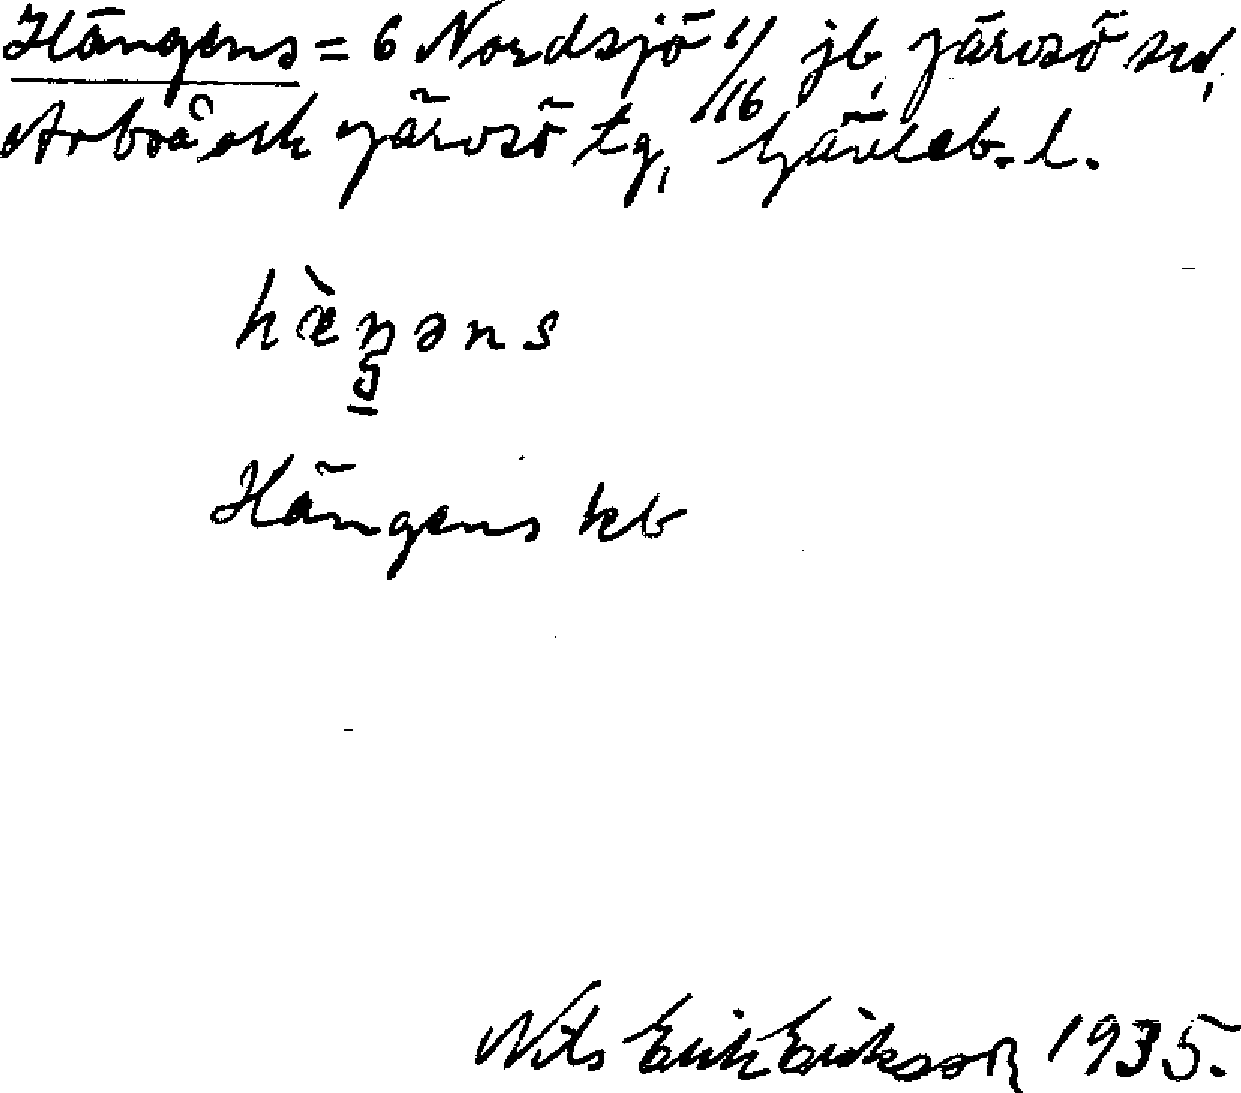 Hängens = 6 Nordsjö 1/16 jb, Järvsö sn,
Arbrå och Järvsö tg, Gävleb. l.
hæ̀ŋəns
Hängens kb
Nils Erik Eriksson 1935.